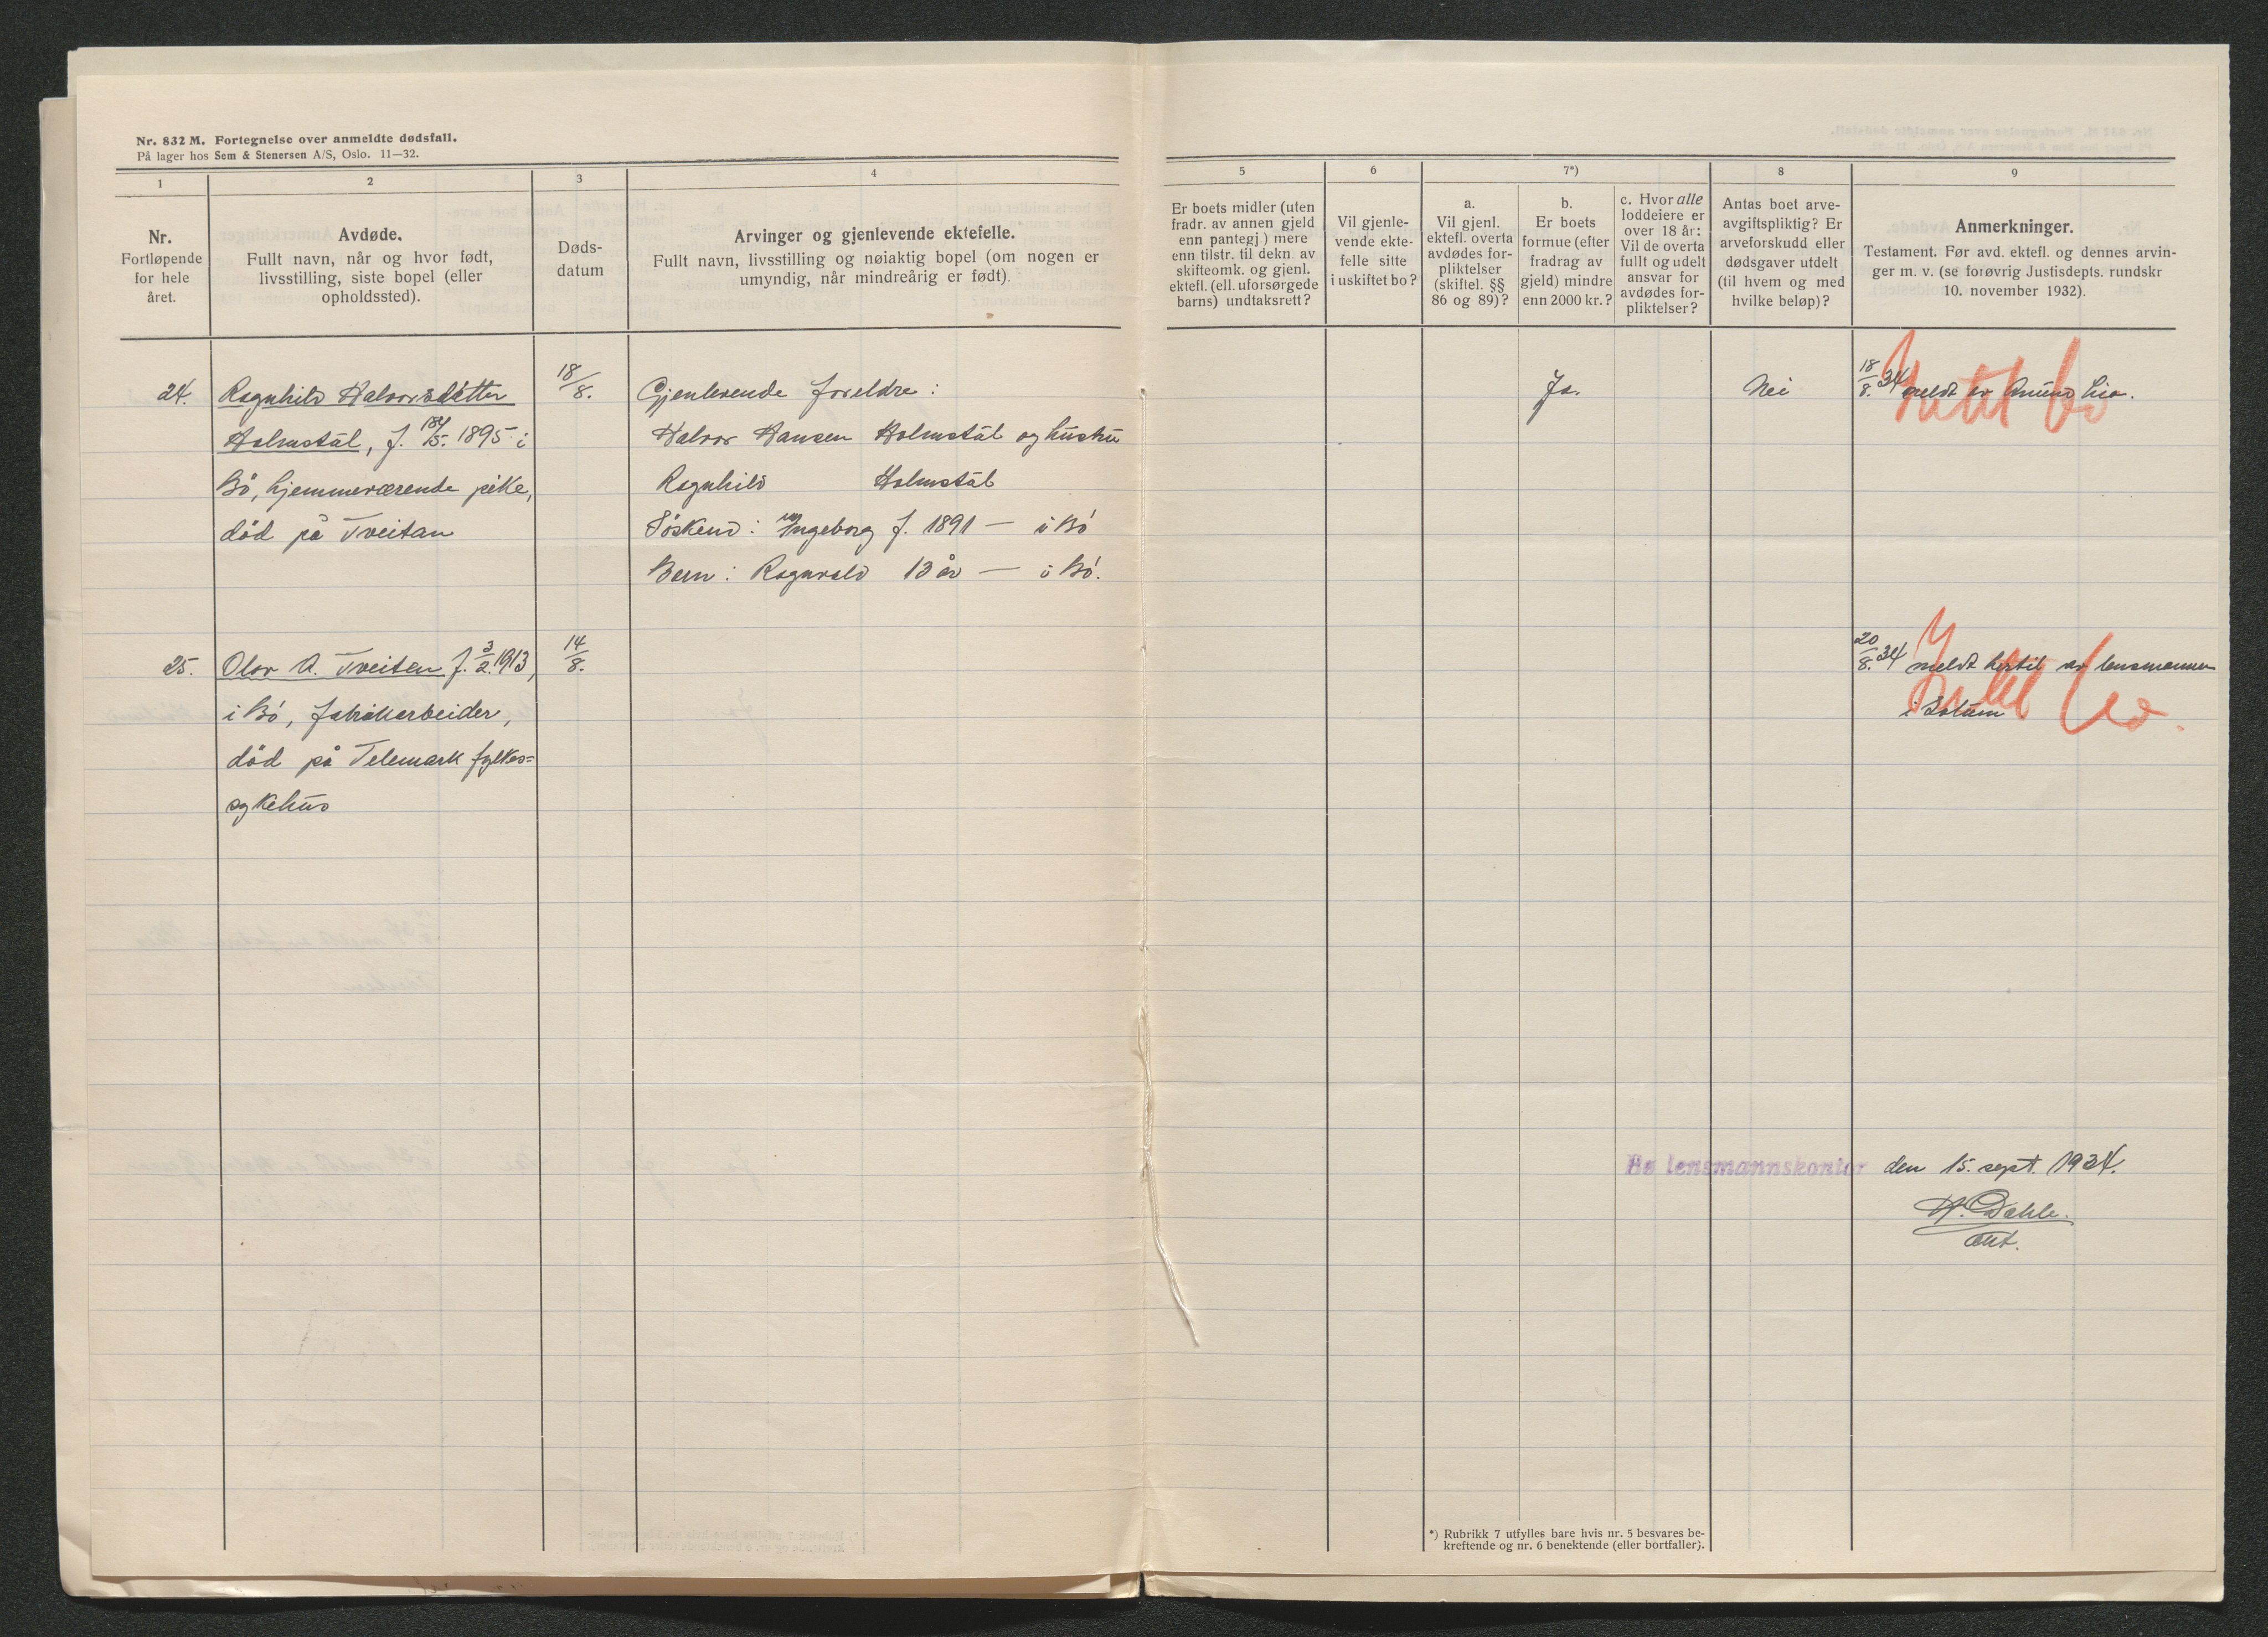 Nr. 832 M. Fortegnelse over anmeldte dødsfall.
På lager hos Sem & Stenersen A/S, Oslo. 11—32.
1
2
3
4
5
6
7*)
8
9
Nr.
Fortløpende
for hele
året.
Avdøde.
Fullt navn, når og hvor født,
livsstilling, siste bopel (eller
opholdssted).
Døds-
datum
Arvinger og gjenlevende ektefelle.
Fullt navn, livsstilling og nøiaktig bopel (om nogen er
umyndig, når mindreårig er født).
Er boets midler (uten
fradr. av annen gjeld
enn pantegj) mere
enn tilstr. til dekn. av
skifteomk. og gjenl.
ektefl. (ell. uforsørgede
barns) undtaksrett?
Vil gjenle-
vende ekte-
felle sitte
i uskiftet bo?
a.
Vil gjenl.
ektefl. overta
avdødes for-
pliktelser
(skiftel. §§
86 og 89)?
b.
Er boets
formue (efter
fradrag av
gjeld) mindre
enn 2000 kr.?
c. Hvor alle
loddeiere er
over 18 år:
Vil de overta
fullt og udelt
ansvar for
avdødes for-
pliktelser?
Antas boet arve-
avgiftspliktig? Er
arveforskudd eller
dødsgaver utdelt
(til hvem og med
hvilke beløp)?
Anmerkninger.
Testament. Før avd. ektefl. og dennes arvin-
ger m. v. (se forøvrig Justisdepts. rundskr
10. november 1932).
24.
Ragnhild Halvorsdatter
Holmstål, f. /5. 1895 i
Bö, hjemmeværende pike,
död på Tveitan
18/8.
Gjenlevende foreldre:
Halvor Hansen Holmstål og hustru
Ragnhild Holmstål
Söskend: Ingeborg f. 1891 — i Bö
Barn: Ragnvald 13 år — i Bö.
Ja.
Nei
18/8. 34 meldt av Amund Lia.
Intet bo
25.
Olav A. Tveitan f. 3/2. 1913,
i Bö, fabrikarbeider,
död på Telemark fylkes=
sykehus
14/8.
20/8. 34 meldt hertil av lensmannen
i Solum
Intet bo.
Bø lensmannskontor den 15. sept. 1934.
H. Dahle.
*) Rubrikk 7 utfylles bare hvis nr. 5 besvares be-
kreftende og nr. 6 benektende (eller bortfaller).